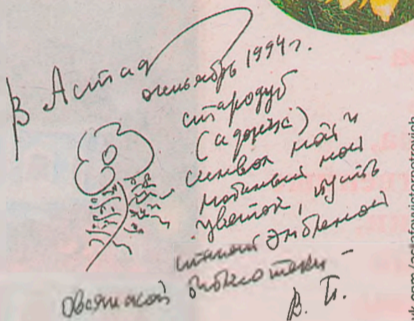 В Астаф
октябрь 1994 г.
стародуб
(адонис)
символ мой и
любимый мой
цветок, пусть
станет эмблемой
Овсянской библиотеки –